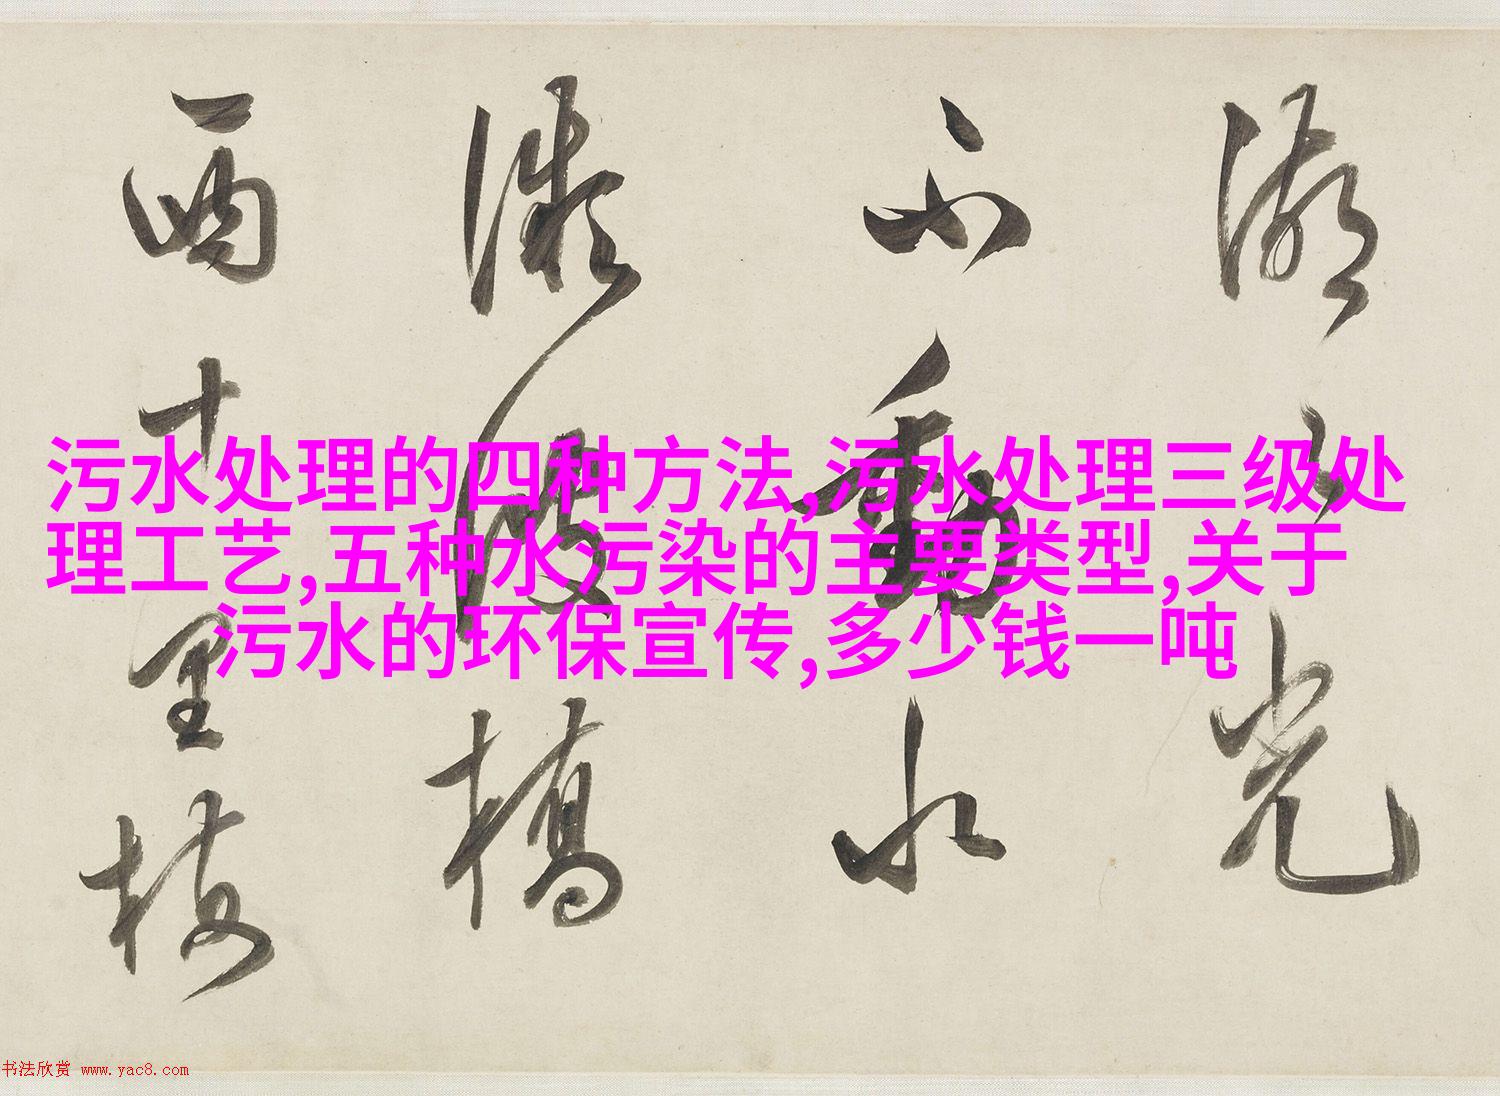 污水处理的四种方法,污水处理三级处
理工艺,五种水污染的主要类型,关于
污水的环保宣传,多少钱一吨
湖光
不動水
波橋
十里
书法欣赏 www.yac8.com